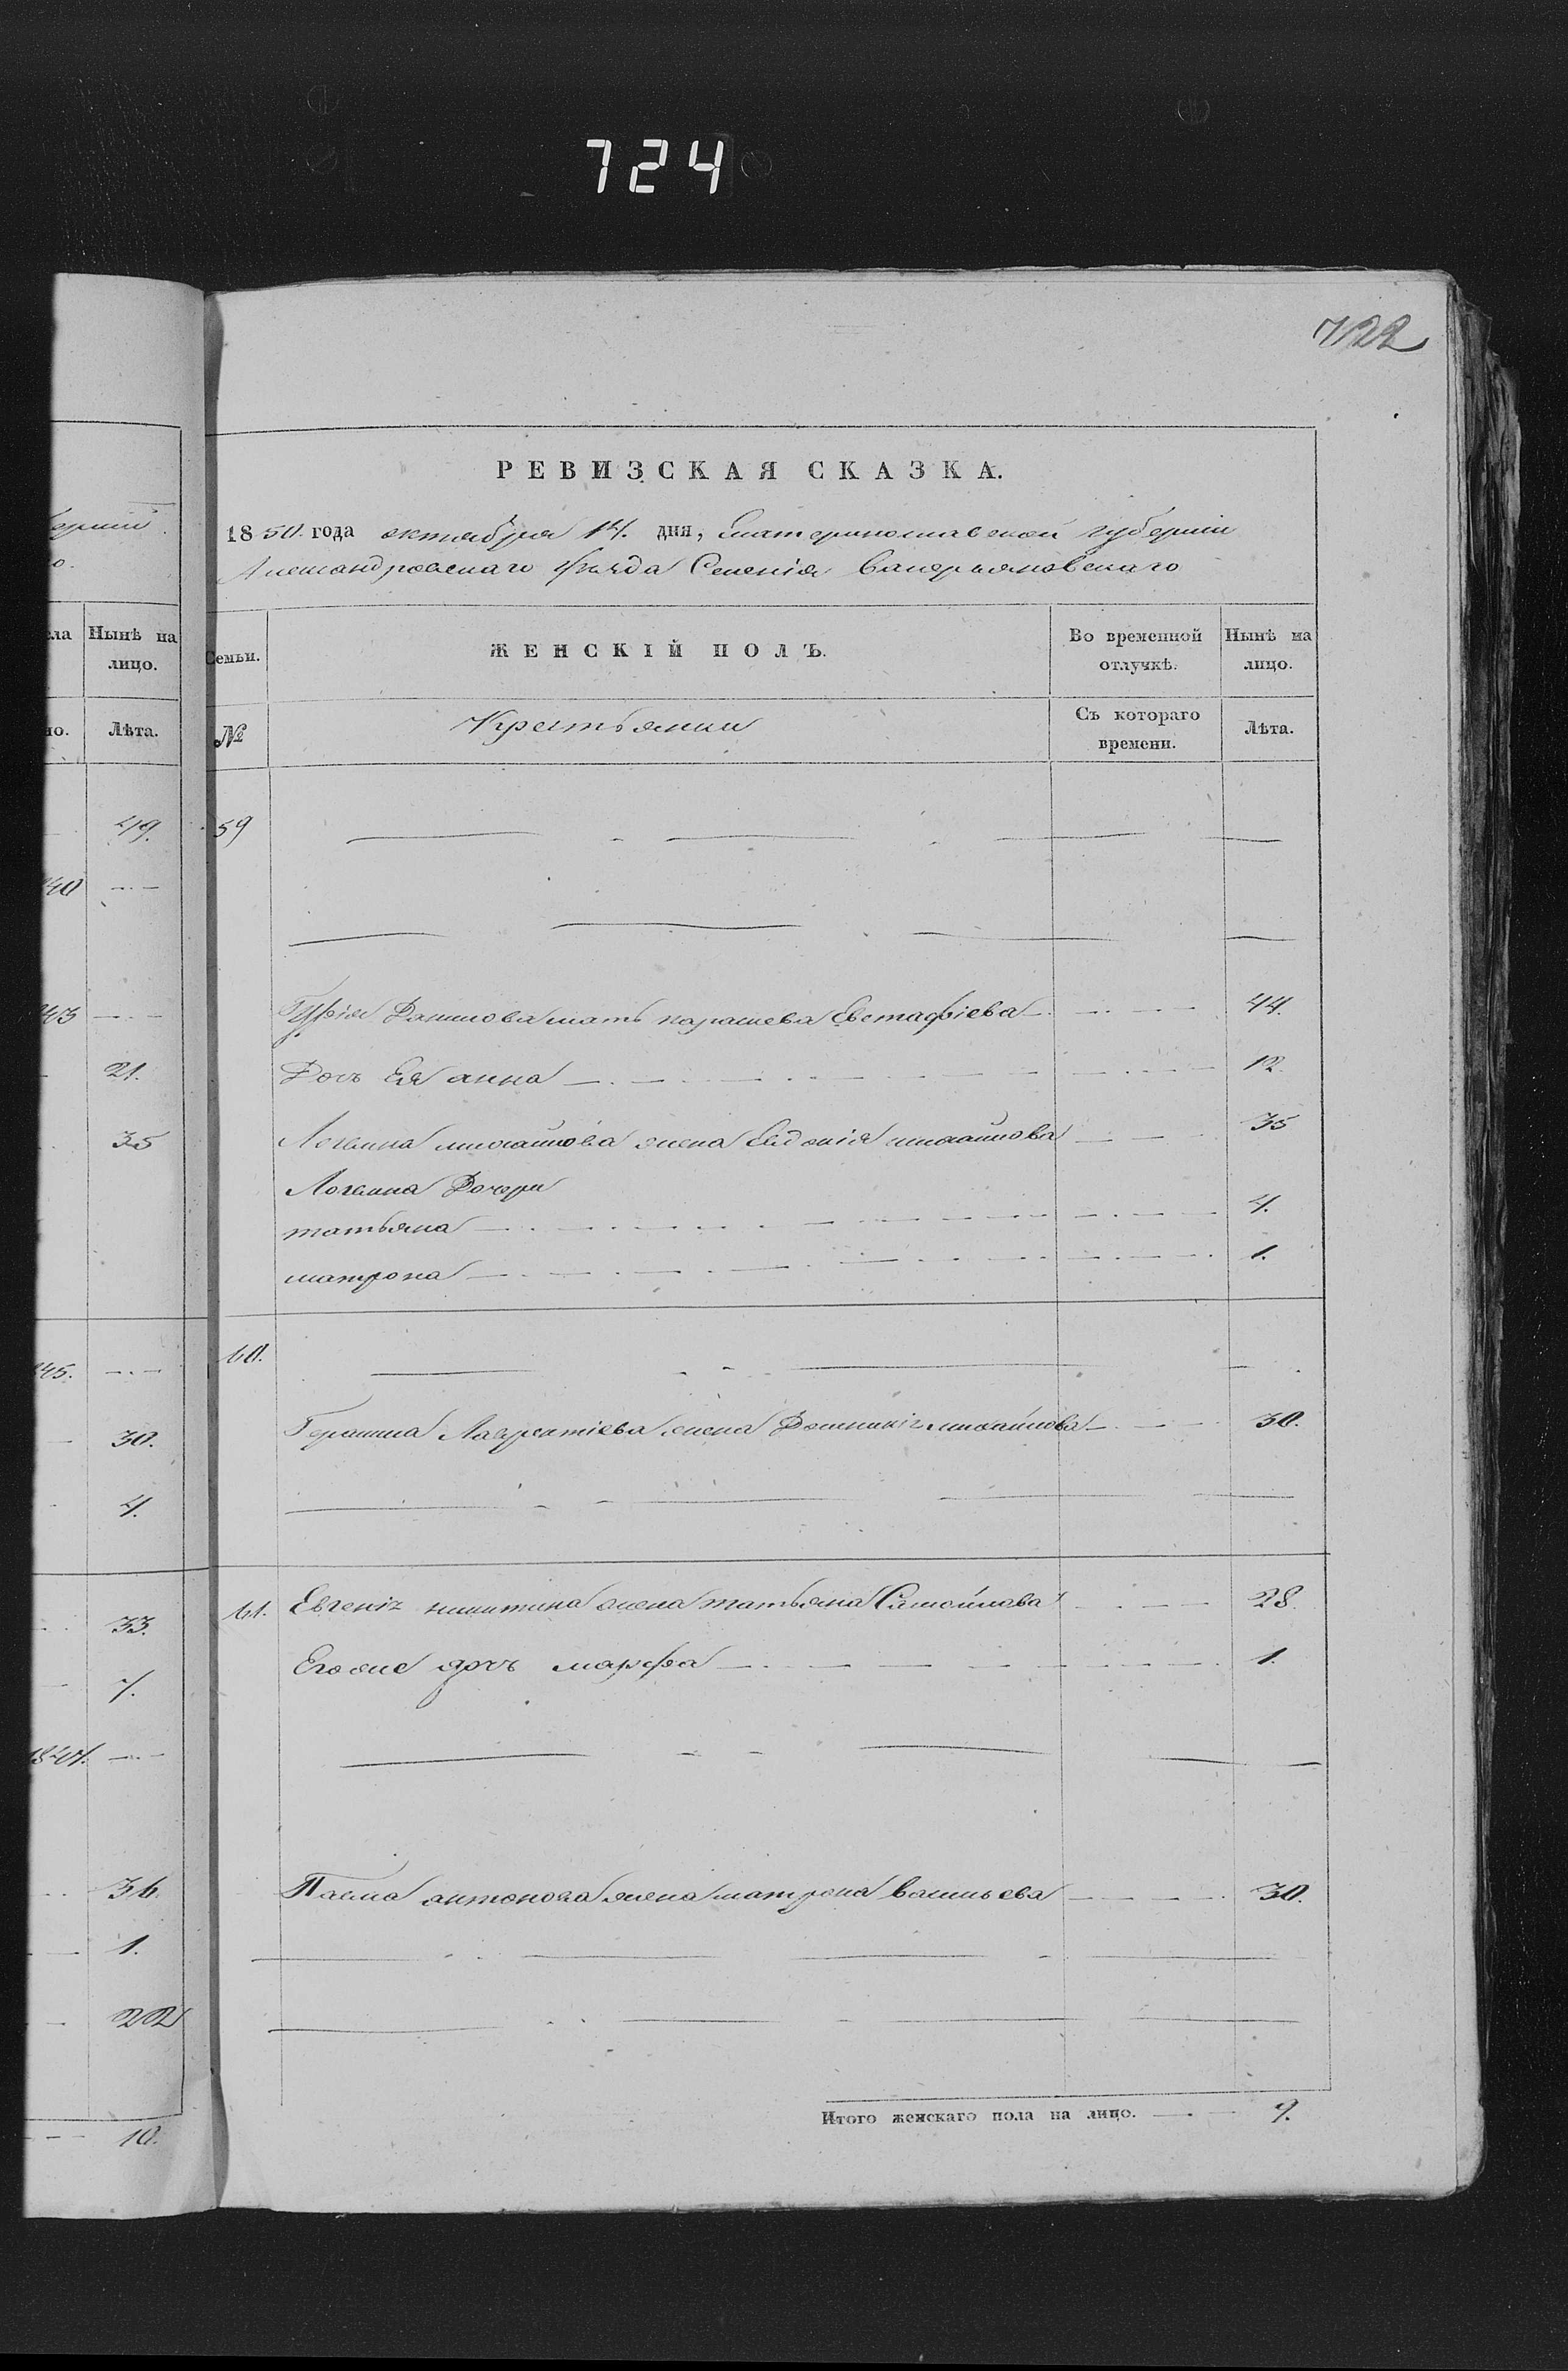 724
722
РЕВИЗСКАЯ СКАЗКА.
1850. года октября 14. дня, Екатеринославской губерніи
Александровскаго уѣзда Селенія Валерьяновскаго
Семьи.
ЖЕНСКІЙ ПОЛЪ.
Во временной отлучкѣ.
Нынѣ на лицо.
№
Крестьянки
Съ котораго времени.
Лѣта.
59
Данилова мать параскева Евстафіева 44.
Дочь Ея анна 12
Логвина михайлова жена Евдокія михайлова 35
Логвина Дочери
татьяна 4.
матрона 1.
60.
Лаврентіева жена михайлова 30.
61. Евгенія никитина жена татьяна Самойлова 28.
Егоже дочь марфа 1.
Павла антонова жена матрона васильева 30.
Итого женскаго пола на лицо. 9.
ерніи
о.
ла
Нынѣ на лицо.
но.
Лѣта.
49.
40
43
21.
35
45.
30.
4.
33.
7.
36.
1.
22
10.